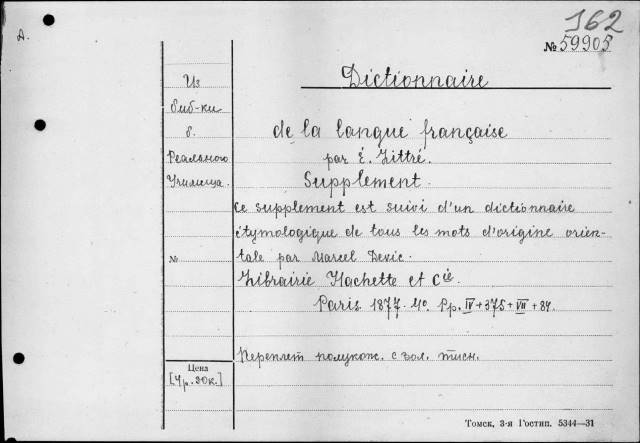 162
А.
№ 59905
Dictionnaire
Из
биб-ки
б.
Реального
Училища.
№
de la langue française
par É. Littré.
Supplement.
Ce supplement est suivi d'un dictionnaire
étymologique de tous les mots d'origine orien-
tale par Marcel Devic.
Librairie Hachette et Cie
Paris 1877. 4o. Pp. IV+375+VII+84.
Переплет полукож. с зол. тисн.
Цена
[4р. 30к.]
Томск, 3-я Гостип. 5344—31